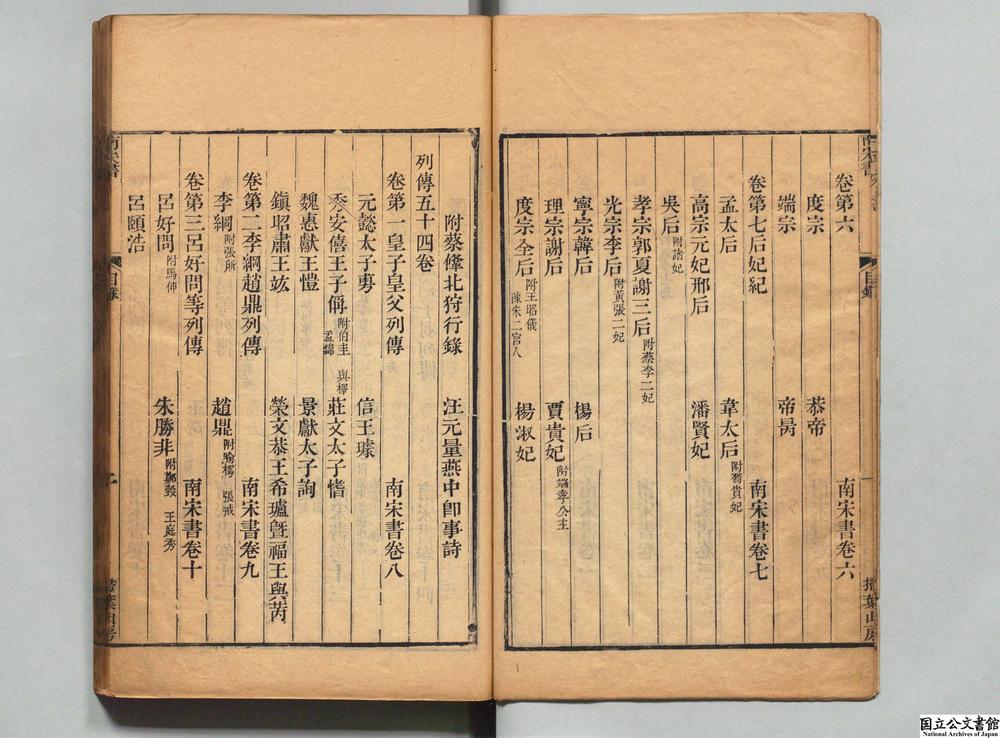 卷第六 南宋書卷六
度宗 恭帝
端宗 帝昺
卷第七后妃紀 南宋書卷七
孟太后 韋太后附喬貴妃
高宗元妃邢后 潘賢妃
吳后附諸妃
孝宗郭夏謝三后附蔡李二妃
光宗李后附黃張二妃
寧宗韓后 楊后
理宗謝后 賈貴妃附端孝公主
度宗全后附王昭儀陳朱二宮人 楊淑妃
附蔡鞗北狩行錄 汪元量燕中卽事詩
列傳五十四卷
卷第一皇子皇父列傳 南宋書卷八
元懿太子旉 信王璩
秀安僖王子偁附伯圭 孟錦 與檡 莊文太子愭
魏惠獻王愷 景獻太子詢
鎭昭肅王竑 榮文恭王希瓐曁福王與芮
卷第二李綱趙鼎列傳 南宋書卷九
李綱附張所 趙鼎附喻樗 張戒
卷第三呂好問等列傳 南宋書卷十
呂好問附馬伸 朱勝非附鄭瑴 王庭秀
呂頤浩
南宋書
目錄
一
掃葉山房
南宋書
目錄
掃葉山房
国立公文書館
National Archives of Japan